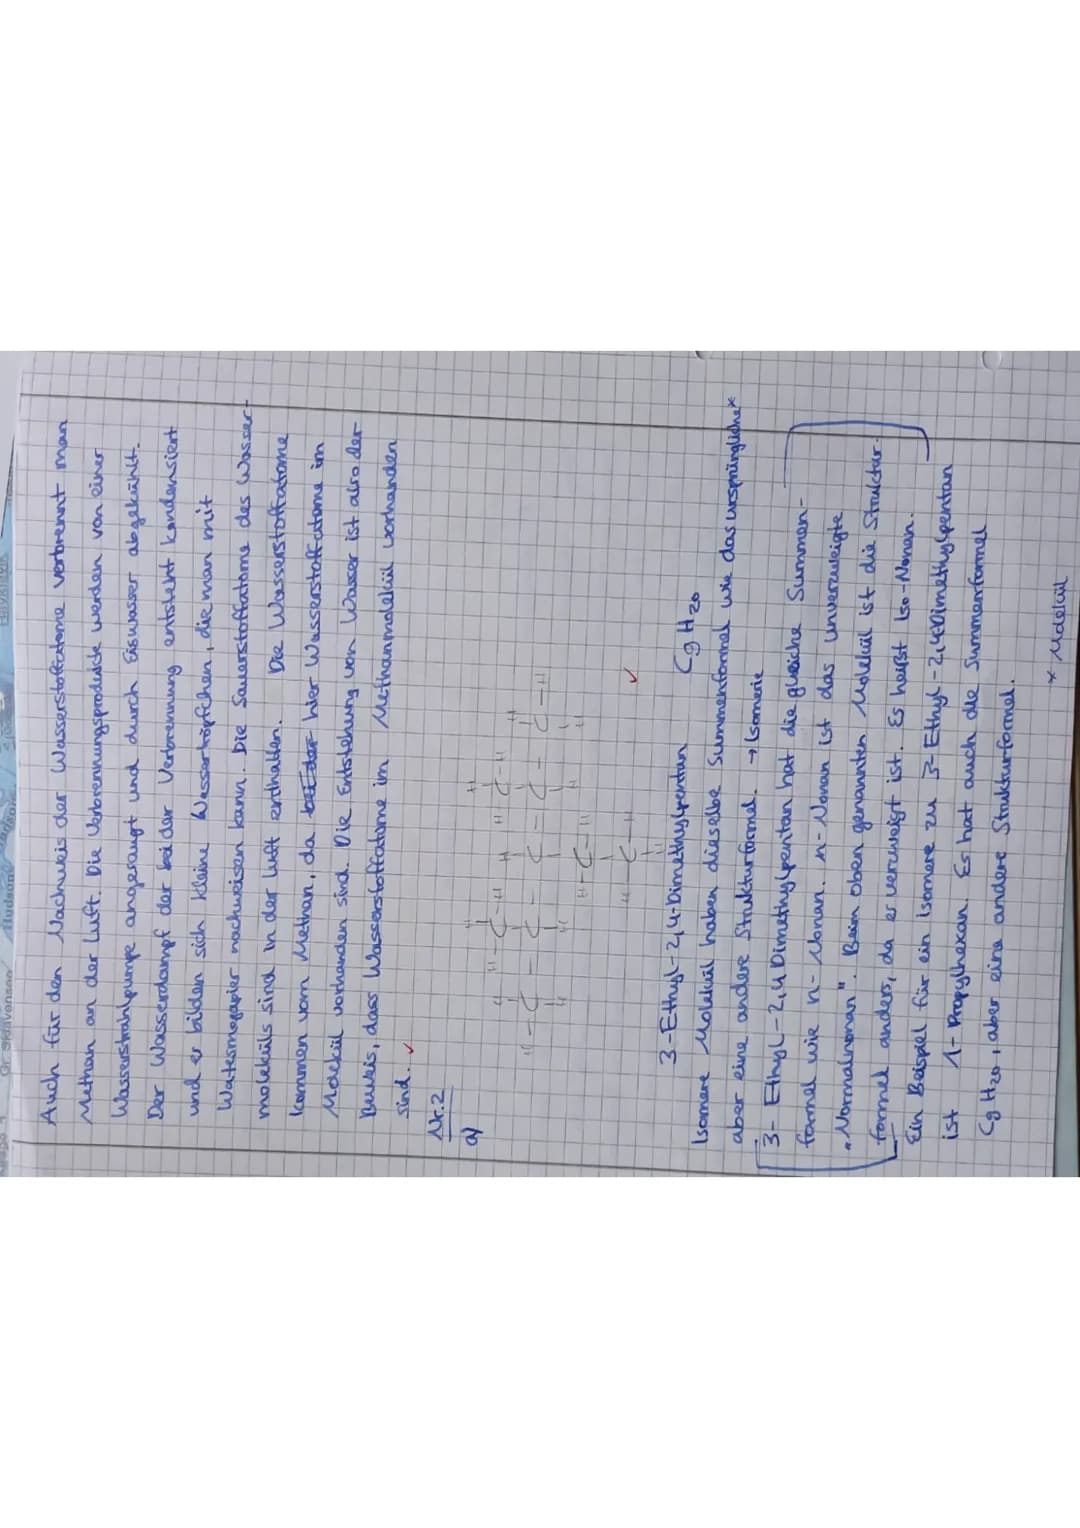 Auch für den Nachweis der Wasserstoffatome verbrennt man
Methan an der Luft. Die Verbrennungsprodukte werden von einer
Wasserstrahlpumpe angesaugt und durch Eiswasser abgekühlt.
Der Wasserdampf der bei der Verbrennung entsteht kondensiert
und es bilden sich kleine Wassertröpfchen, die man mit
Watesmopapier nachweisen kann. Die Sauerstoffatome des Wasser-
moleküls sind in der Luft enthalten. Die Wasserstoffatome
kommen vom Methan, da hier Wasserstoffatome im
Molekül vorhanden sind. Die Entstehung von Wasser ist also der
Beweis, dass Wasserstoffatome im Methanmolekül vorhanden
sind. ✓
Nr.2
a)
H H H H
H-C-H H H-C-H H
H-C-C-C-C-C-H
H H H H
H-C-H
H-C-H ✓
H
3-Ethyl-2,4-Dimethylpentan C9H20
Isomere Moleküle haben dieselbe Summenformel wie das ursprüngliche*
aber eine andere Strukturformel. → Isomerie
3-Ethyl-2,4 Dimethylpentan hat die gleiche Summen-
formel wie n-Nonan. n-Nonan ist das unverzweigte
"Normalnonan". Beim oben genannten Molekül ist die Struktur-
formel anders, da es verzweigt ist. Es heißt Iso-Nonan.
Ein Beispiel für ein Isomere zu 3-Ethyl-2,4-Dimethylpentan
ist 1-Propylhexan. Es hat auch die Summenformel
C9H20, aber eine andere Strukturformel.
* Molekül